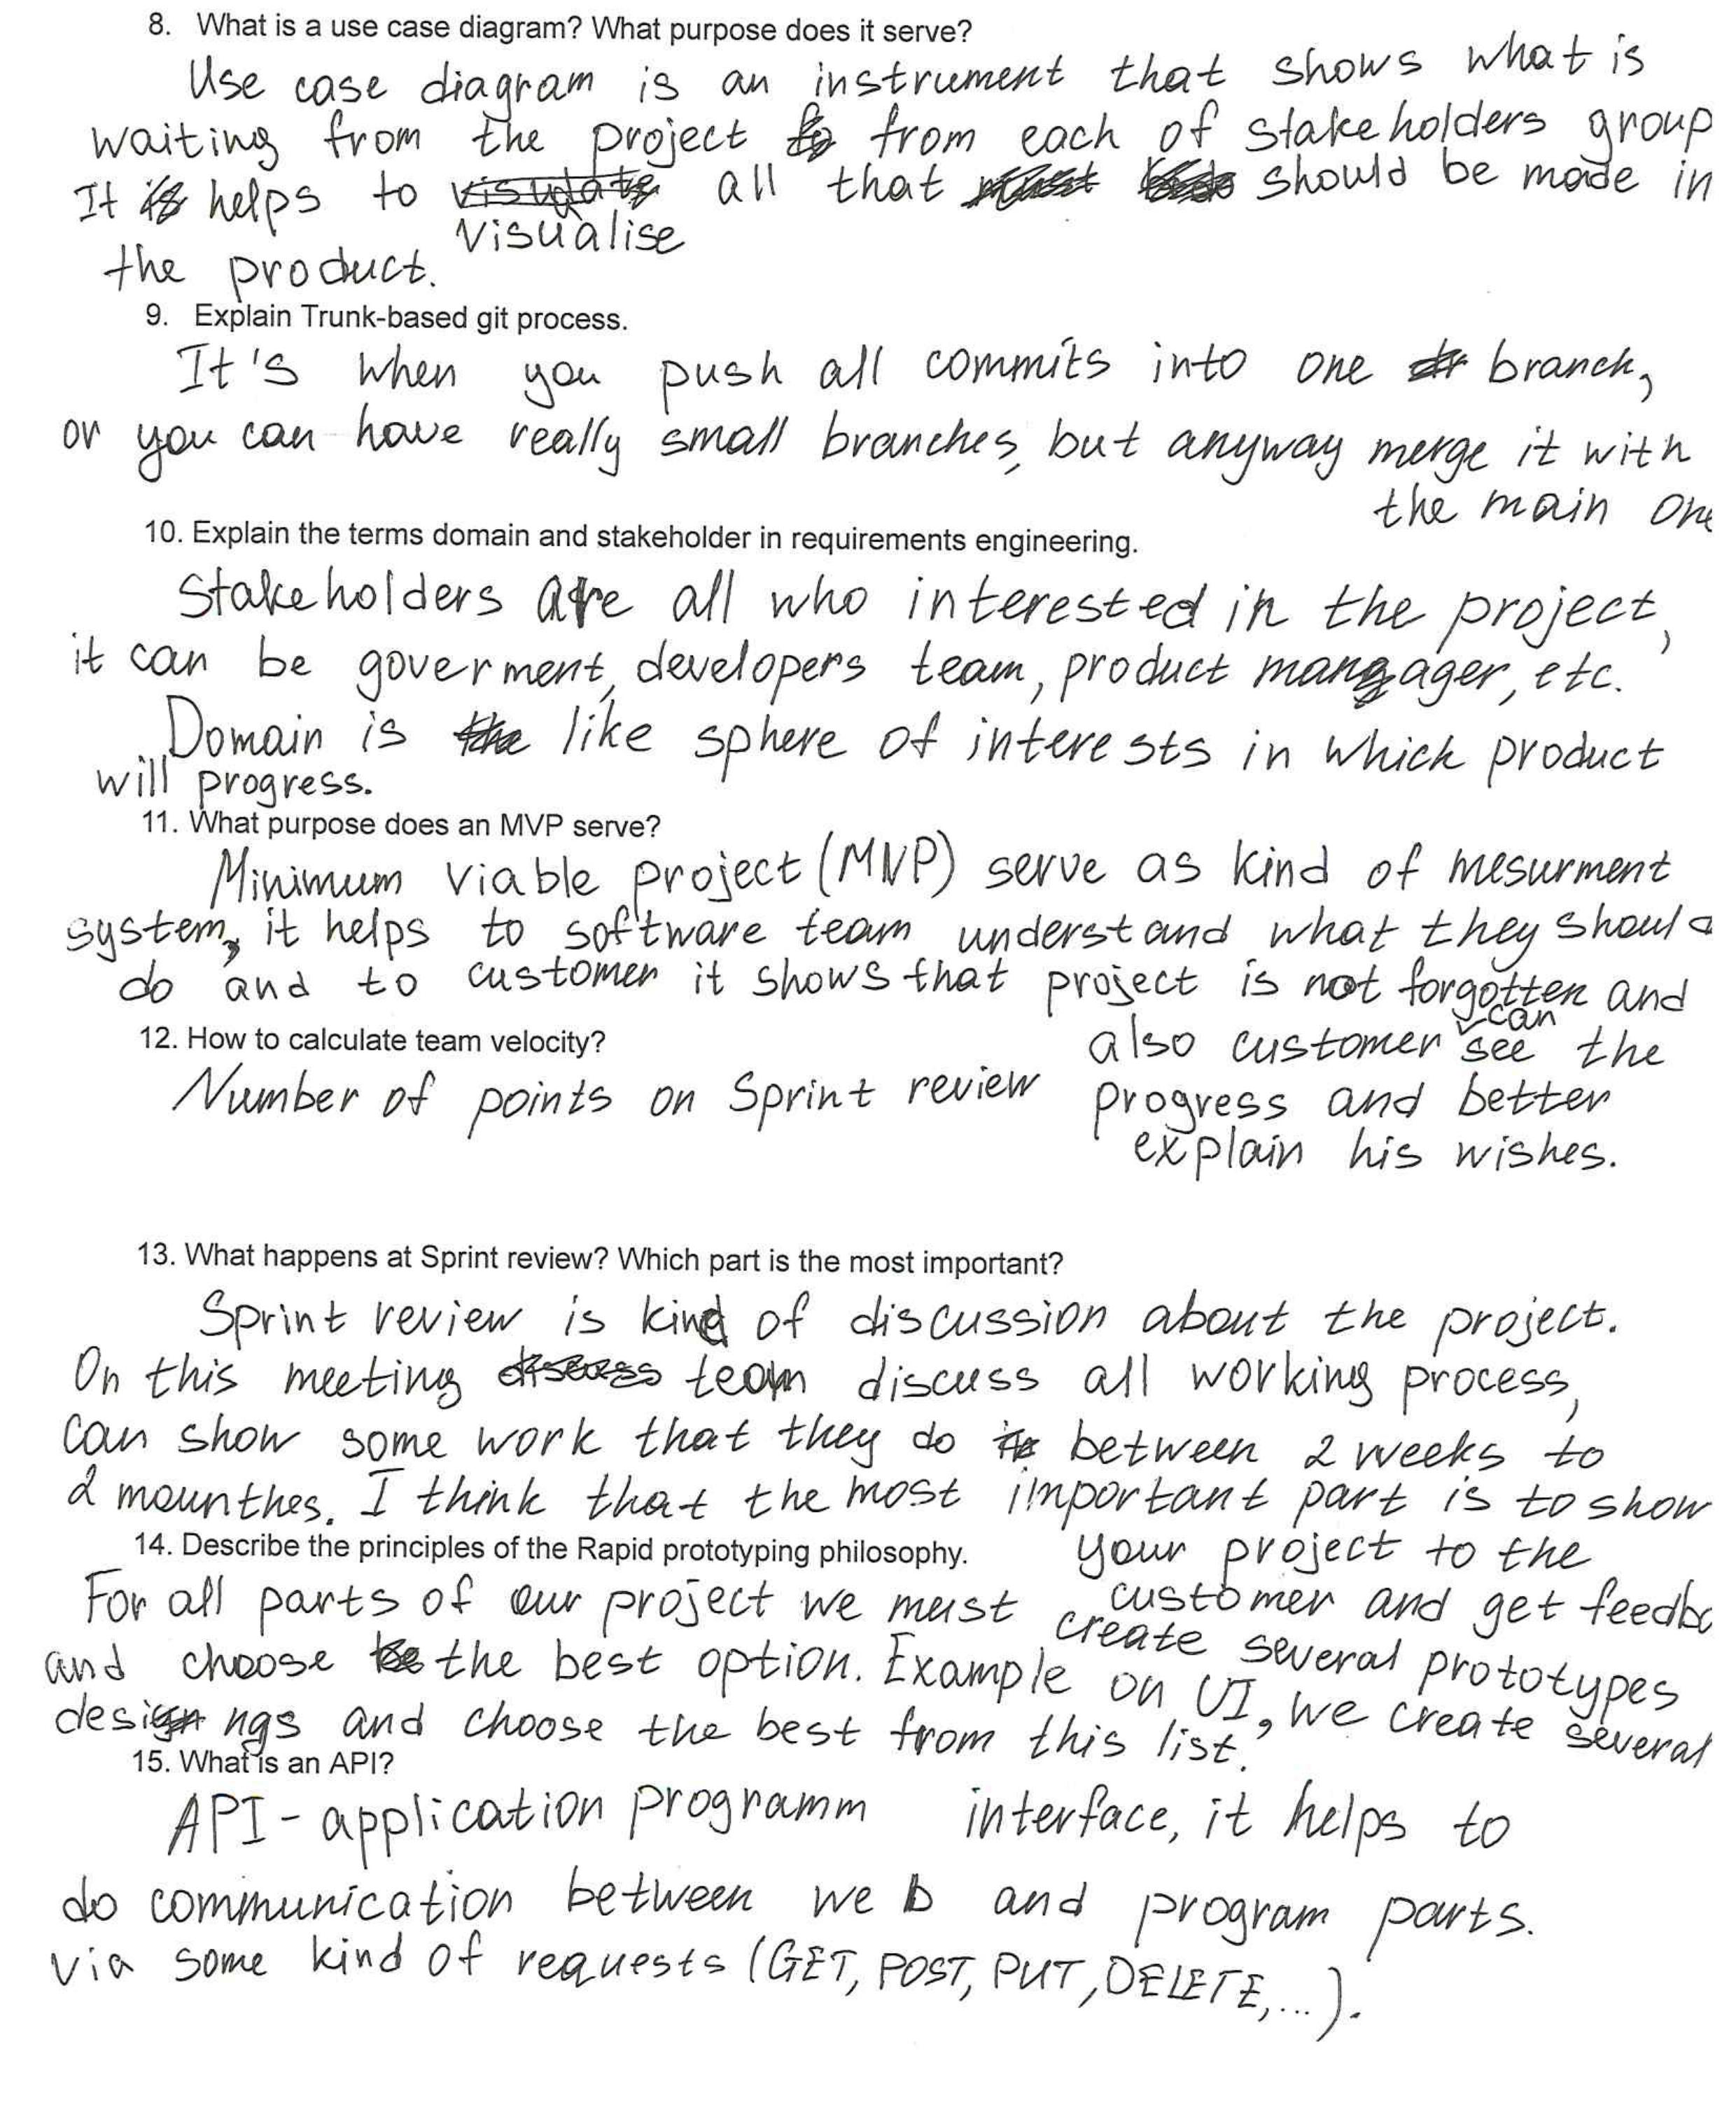 8. What is a use case diagram? What purpose does it serve?
Use case diagram is an instrument that shows what is
waiting from the project from each of stakeholders group
It helps to visualise all that should be made in
the product.
9. Explain Trunk-based git process.
It's when you push all commits into one branch,
or you can have really small branches, but anyway merge it with
the main one
10. Explain the terms domain and stakeholder in requirements engineering.
Stakeholders are all who interested in the project,
it can be goverment, developers team, product manager, etc.
Domain is like sphere of interests in which product
will progress.
11. What purpose does an MVP serve?
Minimum viable project (MVP) serve as kind of mesurment
system, it helps to software team understand what they should
do and to customer it shows that project is not forgotten and
also customer can see the
progress and better
explain his wishes.
12. How to calculate team velocity?
Number of points on Sprint review
13. What happens at Sprint review? Which part is the most important?
Sprint review is kind of discussion about the project.
On this meeting team discuss all working process,
can show some work that they do between 2 weeks to
2 mounthes. I think that the most important part is to show
your project to the
customer and get feedbac
14. Describe the principles of the Rapid prototyping philosophy.
For all parts of our project we must create several prototypes
and choose the best option. Example on UI, we create several
desingngs and choose the best from this list.
15. What is an API?
API - application programm interface, it helps to
do communication between web and program parts.
via some kind of requests (GET, POST, PUT, DELETE, ...).